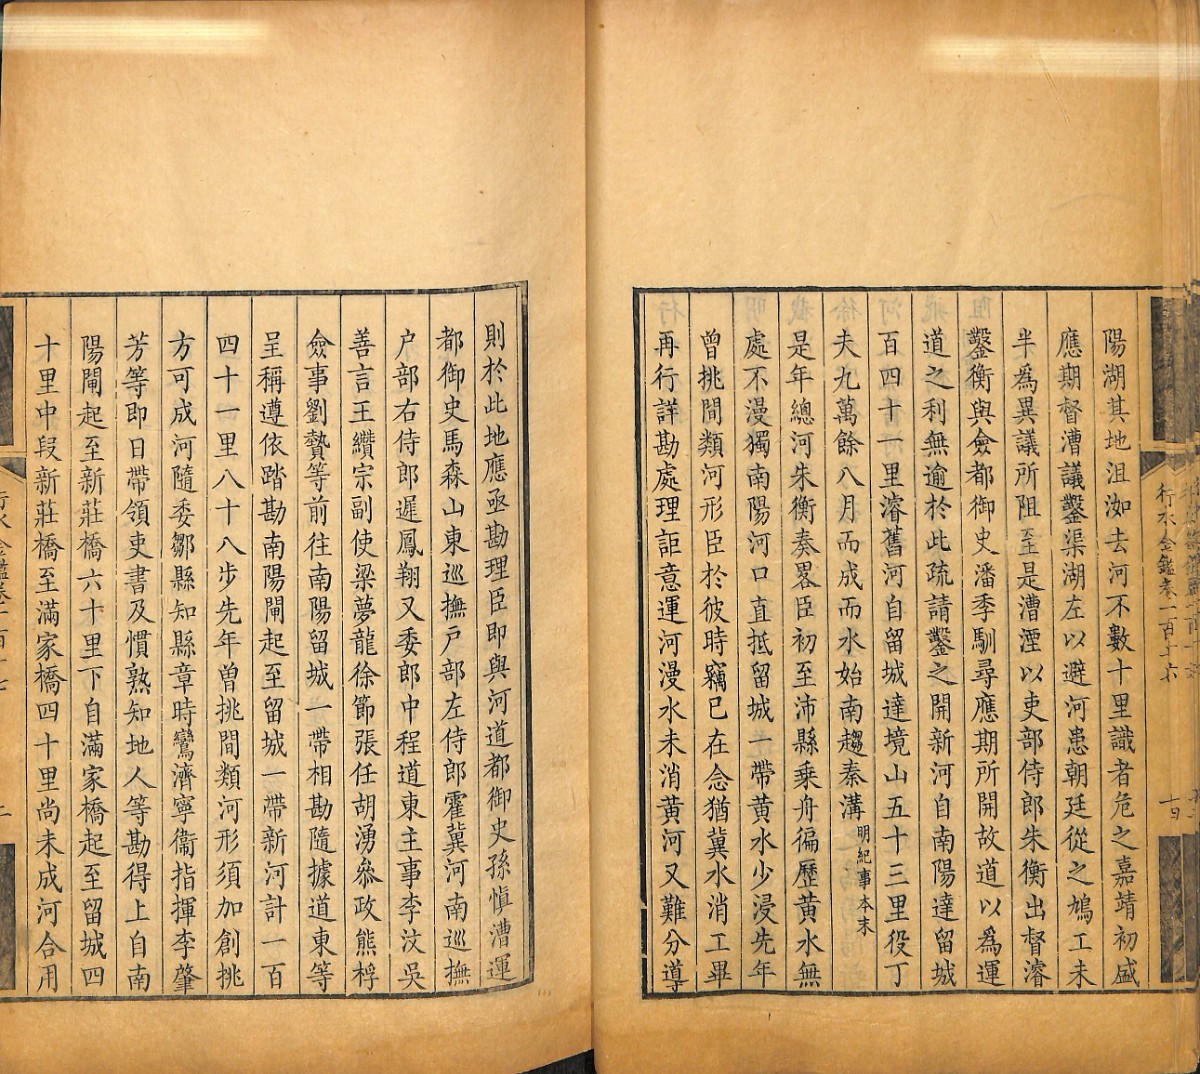 陽湖其地沮洳去河不數十里識者危之嘉靖初盛
應期督漕議鑿渠湖左以避河患朝廷從之鳩工未
半爲異議所阻至是漕湮以吏部侍郎朱衡出督濬
鑿衡與僉都御史潘季馴尋應期所開故道以爲運
道之利無逾於此疏請鑿之開新河自南陽達留城
百四十一里濬舊河自留城達境山五十三里役丁
夫九萬餘八月而成而水始南趨秦溝明紀事本末
是年總河朱衡奏畧臣初至沛縣乗舟徧歷黄水無
處不漫獨南陽河口直抵留城一帶黄水少浸先年
曾挑間類河形臣於彼時竊已在念猶冀水消工畢
再行詳勘處理詎意運河漫水未消黄河又難分導
行水金鑑卷一百十六
則於此地應亟勘理臣即與河道都御史孫慎漕運
都御史馬森山東巡撫戸部左侍郎霍冀河南巡撫
户部右侍郎遲鳳翔又委郎中程道東主事李汶吳
善言王纘宗副使梁夢龍徐節張任胡湧叅政熊桴
僉事劉贄等前往南陽留城一帶相勘隨據道東等
呈稱遵依踏勘南陽閘起至留城一帶新河計一百
四十一里八十八步先年曽挑間類河形須加創挑
方可成河隨委鄒縣知縣章時鸞濟寧衞指揮李肇
芳等即日帶領吏書及慣熟知地人等勘得上自南
陽閘起至新莊橋六十里下自滿家橋起至留城四
十里中段新莊橋至滿家橋四十里尚未成河合用